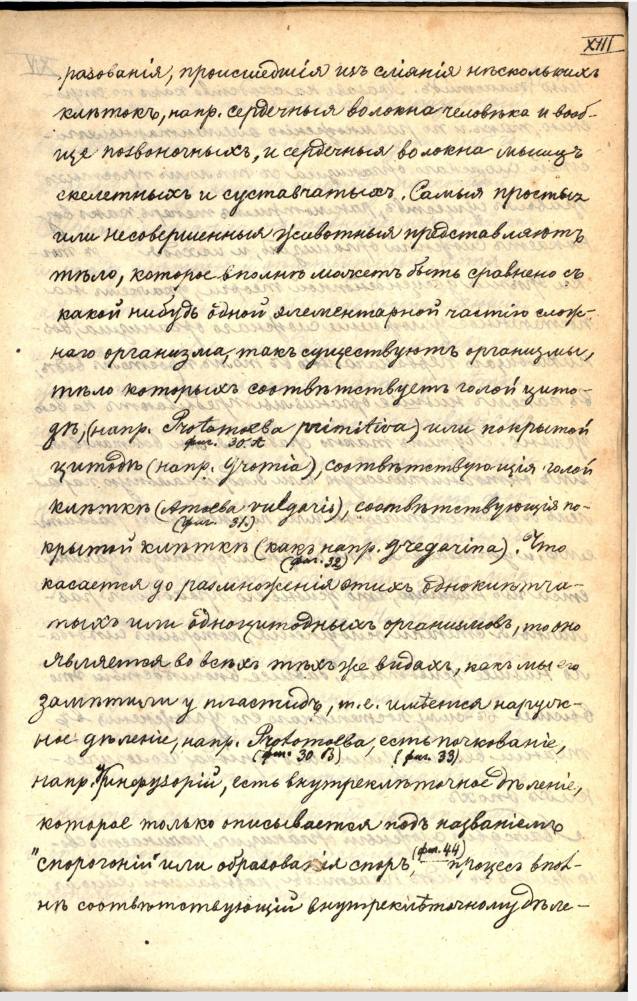 XIII
разованія, происшедшія изъ сліянія нѣсколькихъ
клѣтокъ, напр. сердечныя волокна человѣка и вооб-
ще позвоночныхъ, и сердечныя волокна мышцъ
скелетныхъ и суставчатыхъ. Самыя простыя
или несовершенныя животныя представляютъ
тѣло, которое вполнѣ можетъ быть сравнено съ
какой нибудь одной элементарной частію слож-
наго организма, такъ существуютъ организмы,
тѣло которыхъ соотвѣтствуетъ голой цито-
дѣ, (напр. Protomoeba primitiva) или покрытой
фиг. 30. А
цитодѣ (напр. Gromia), соотвѣтствующія голой
клѣткѣ (Amoeba vulgaris), соотвѣтствующія по-
(фиг. 31.)
крытой клѣткѣ (какъ напр. Gregarina). Что
(фиг. 32)
касается до размноженія этихъ одноклѣтча-
тыхъ или одноцитодныхъ организмовъ, то оно
является во всѣхъ тѣхъ же видахъ, какъ мы его
замѣтили у пластидъ, т.е. имѣется наруж-
ное дѣленіе, напр. Protomoeba, есть почкованіе,
(фиг. 30 В) (фиг. 33)
напр. у инфузорій, есть внутреклѣточное дѣленіе,
которое только описывается подъ названіемъ
"спорогоній" или образованія споръ, (фиг. 44) процесъ впол-
нѣ соотвѣтствующій внутреклѣточному дѣле-